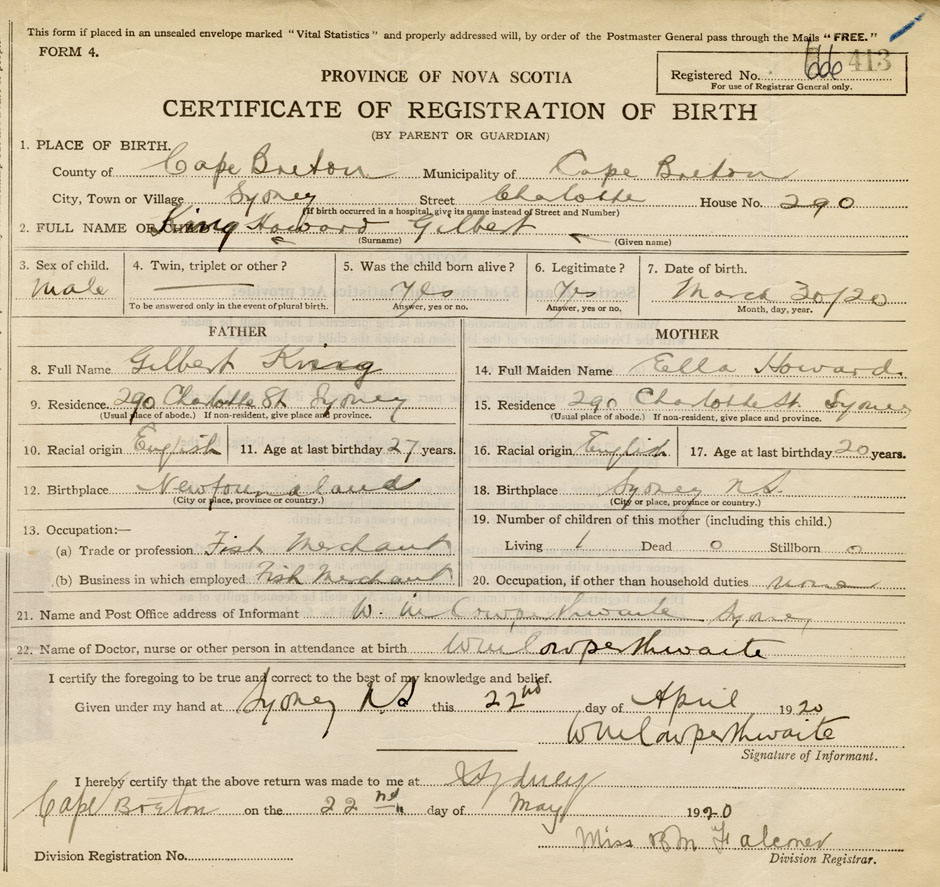 This form if placed in an unsealed envelope marked "Vital Statistics" and properly addressed will, by order of the Postmaster General pass through the Mails "FREE."
FORM 4.
PROVINCE OF NOVA SCOTIA
Registered No. 666 413
For use of Registrar General only.
CERTIFICATE OF REGISTRATION OF BIRTH
(BY PARENT OR GUARDIAN)
1. PLACE OF BIRTH.
County of Cape Breton Municipality of Cape Breton
City, Town or Village Sydney Street Charlotte House No. 290
(If birth occurred in a hospital, give its name instead of Street and Number)
2. FULL NAME OF CHILD King Howard Gilbert
(Surname) (Given name)
3. Sex of child. 4. Twin, triplet or other? 5. Was the child born alive? 6. Legitimate? 7. Date of birth.
Male Yes Yes March 30/20
To be answered only in the event of plural birth. Answer, yes or no. Answer, yes or no. Month, day, year.
FATHER MOTHER
8. Full Name Gilbert King 14. Full Maiden Name Ella Howard
9. Residence 290 Charlotte St Sydney 15. Residence 290 Charlotte St Sydney
(Usual place of abode.) If non-resident, give place and province. (Usual place of abode.) If non-resident, give place and province.
10. Racial origin English 11. Age at last birthday 27 years. 16. Racial origin English 17. Age at last birthday 20 years.
12. Birthplace Newfoundland 18. Birthplace Sydney N.S.
(City or place, province or country.) (City or place, province or country.)
13. Occupation:— 19. Number of children of this mother (including this child.)
(a) Trade or profession Fish Merchant Living 1 Dead 0 Stillborn 0
(b) Business in which employed Fish Merchant 20. Occupation, if other than household duties none
21. Name and Post Office address of Informant W. M Cowperthwaite Sydney
22. Name of Doctor, nurse or other person in attendance at birth W M Cowperthwaite
I certify the foregoing to be true and correct to the best of my knowledge and belief.
Given under my hand at Sydney N S this 22nd day of April 1920
W M Cowperthwaite
Signature of Informant.
I hereby certify that the above return was made to me at Sydney
Cape Breton on the 22nd day of May 1920
Miss B M Falconer
Division Registration No. Division Registrar.